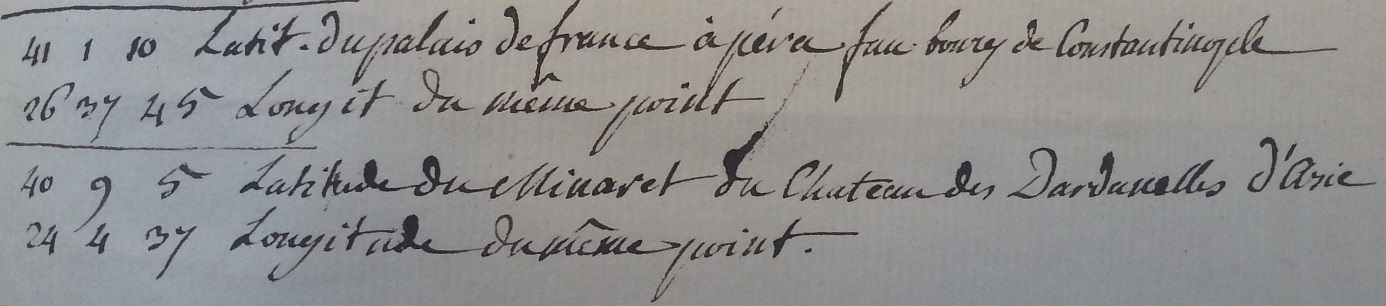 41 1 10 Latit. du palais de france à péra faubourg de Constantinople
26 37 45 Longit du même point
40 9 5 Latitude du Minaret du Chateau des Dardanelles d'Asie
24 4 37 Longitude du même point.